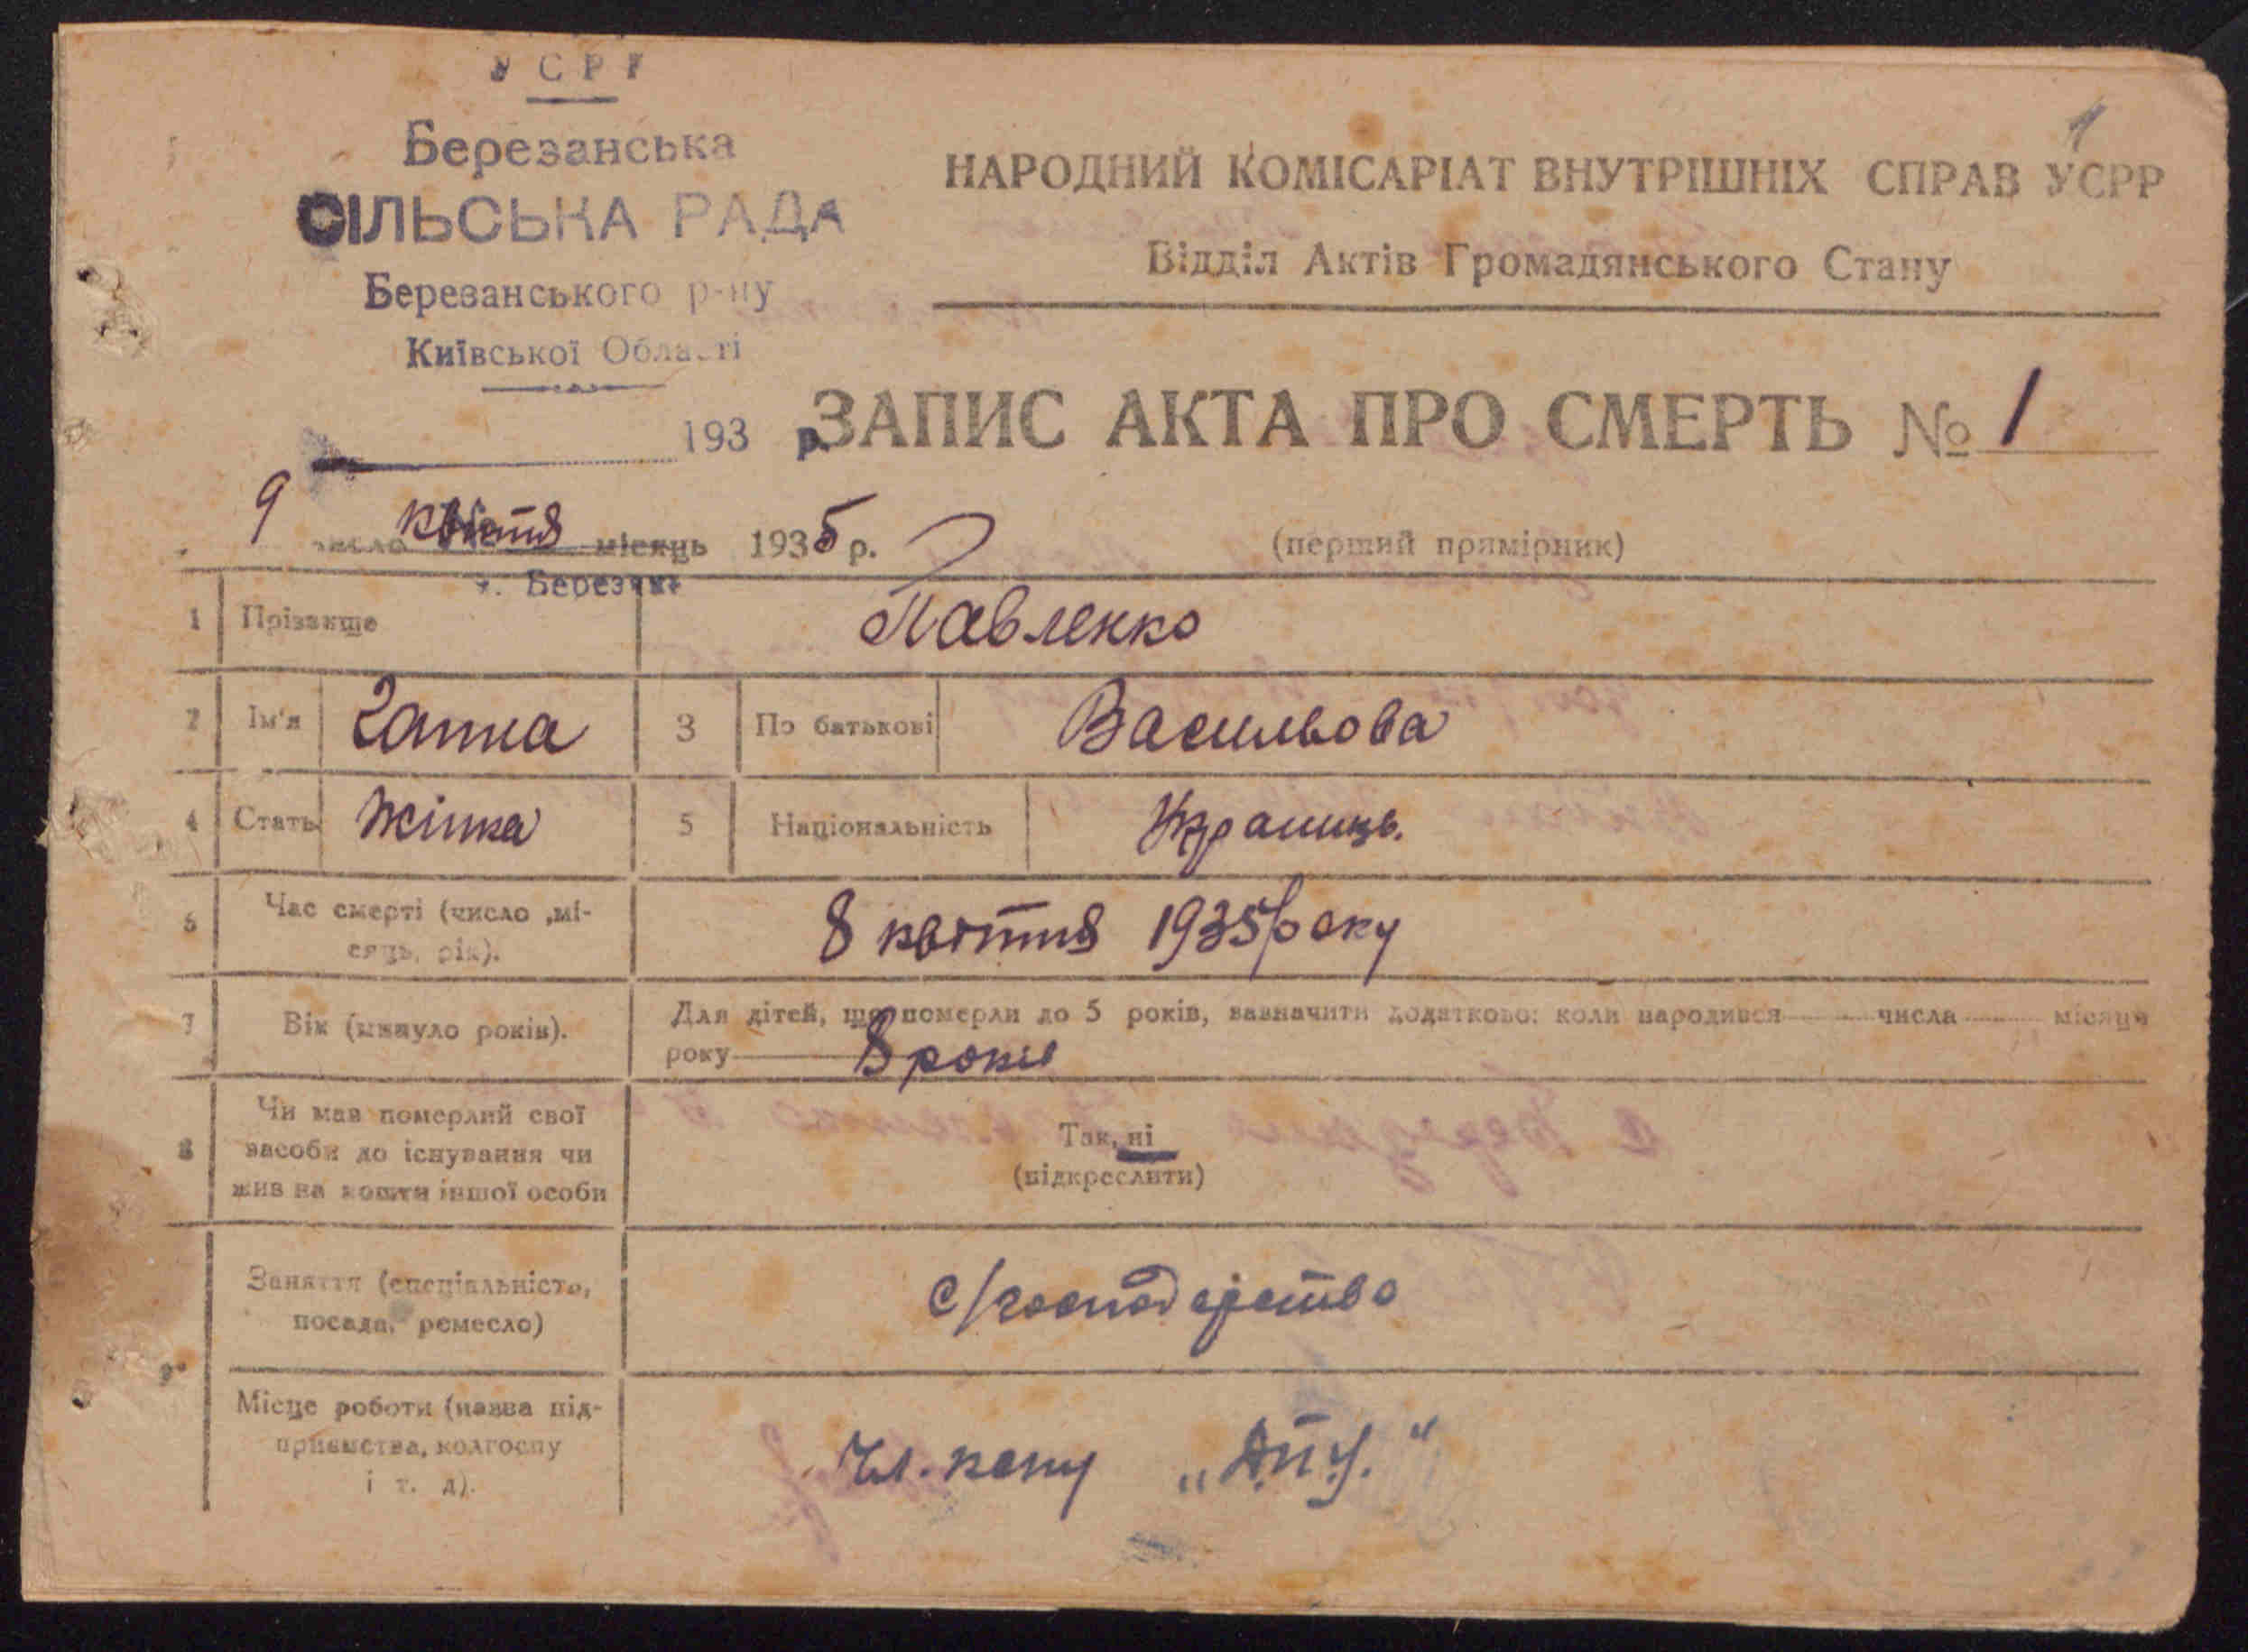 УСРР
Березанська
СІЛЬСЬКА РАДА
Березанського р-ну
Київської Області
193 р.
1
НАРОДНИЙ КОМІСАРІАТ ВНУТРІШНІХ СПРАВ УСРР
Відділ Актів Громадянського Стану
ЗАПИС АКТА ПРО СМЕРТЬ № 1
9 число квітня місяць 1935 р.
(перший примірник)
1 Прізвище Павленко
2 Ім'я Ганна 3 По батькові Васильова
4 Стать Жінка 5 Національність Украинць.
6 Час смерті (число ,мі-
сяць, рік).
8 квітня 1935/року
7 Вік (минуло років).
Для дітей, що померли до 5 років, зазначити додатково: коли народився числа місяця
року 8 роки
8 Чи мав померлий свої
засоби до існування чи
жив на кошти іншої особи
Так, ні
(підкреслити)
9
Заняття (спеціальність,
посада, ремесло)
с/господарство
Місце роботи (назва під-
приємства, колгоспу
і т. д).
Чл. "Д.П.У."